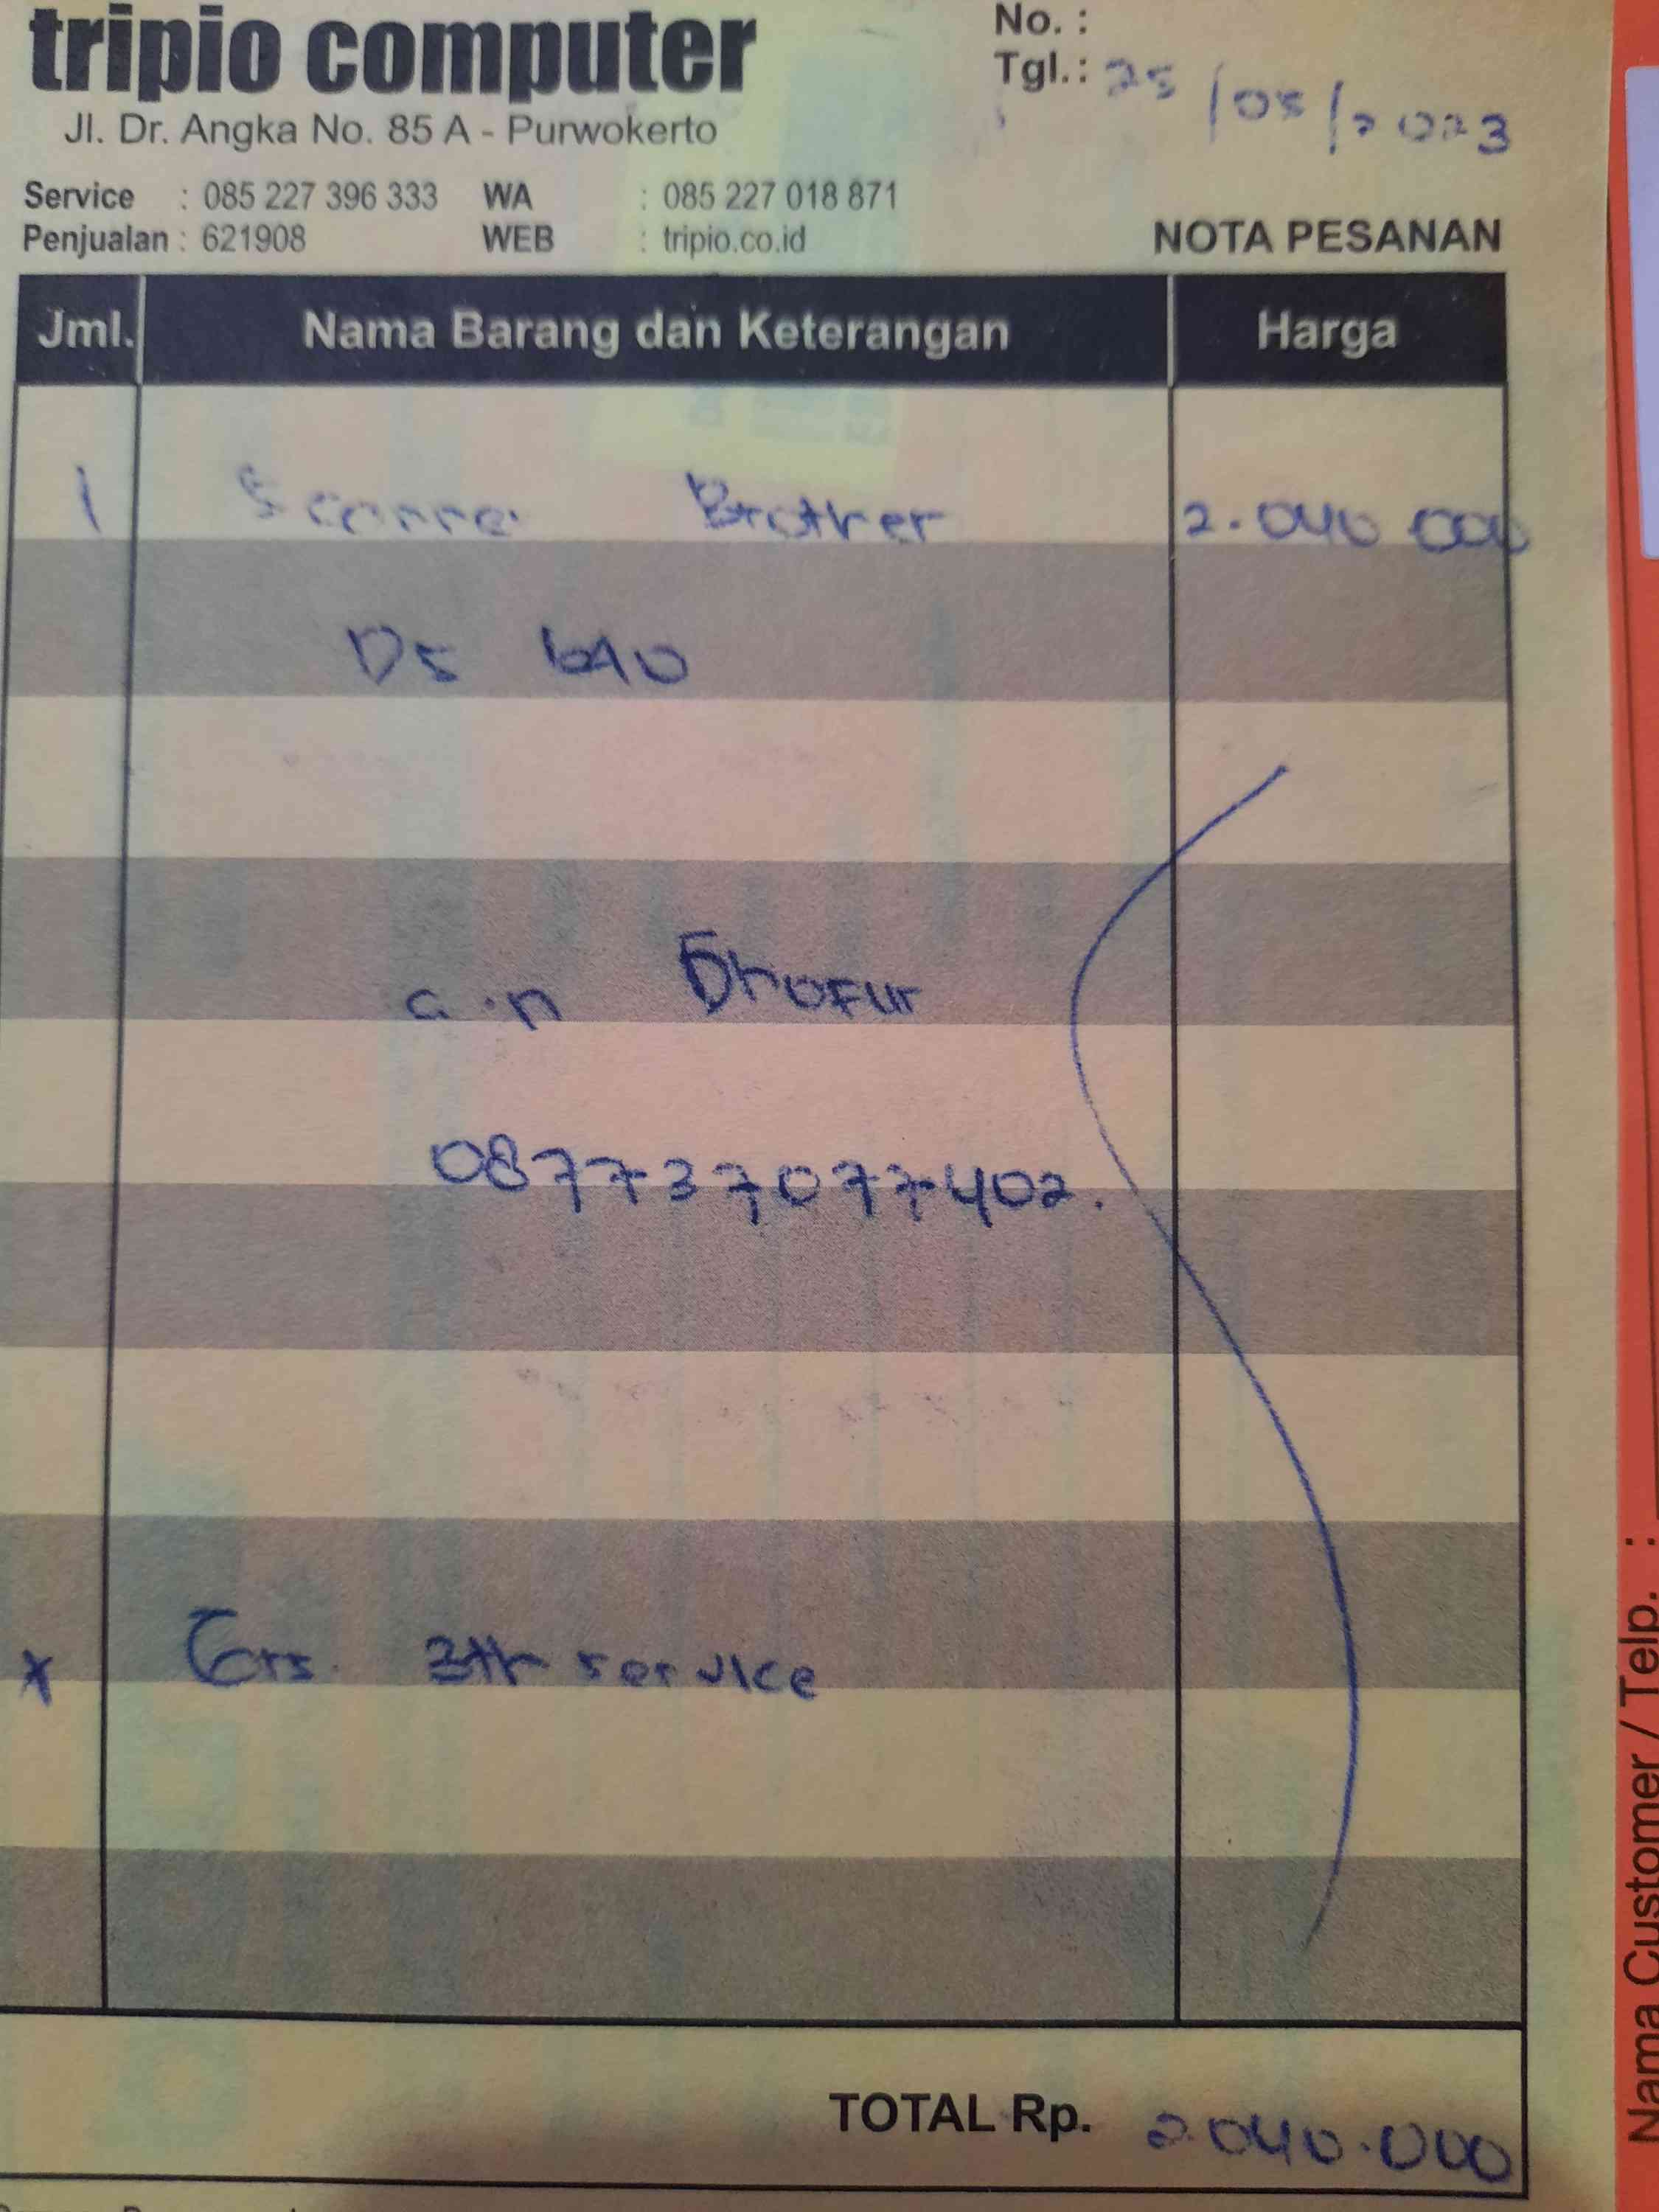 tripio computer
Jl. Dr. Angka No. 85 A - Purwokerto
Service : 085 227 396 333 WA : 085 227 018 871
Penjualan : 621908 WEB : tripio.co.id
No. :
Tgl.: 25/05/2023
NOTA PESANAN
Jml. Nama Barang dan Keterangan Harga
1 Scanner Brother 2.040.000
DS 640
a.n Dhofur
087737077402.
* Grs. 3th service
TOTAL Rp. 2.040.000
Nama Customer / Telp. :